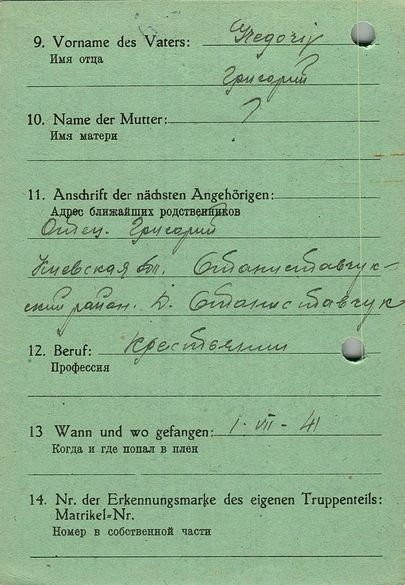 9. Vorname des Vaters: Gregorij
Имя отца
Григорий
10. Name der Mutter: ?
Имя матери
11. Anschrift der nächsten Angehörigen:
Адрес ближайших родственников
Отец. Григорий
Киевская обл. Станиставчук-
ский район. Д. Станиставчук
12. Beruf: Крестьянин
Профессия
13 Wann und wo gefangen: 1. VII - 41
Когда и где попал в плен
14. Nr. der Erkennungsmarke des eigenen Truppenteils:
Matrikel-Nr.
Номер в собственной части